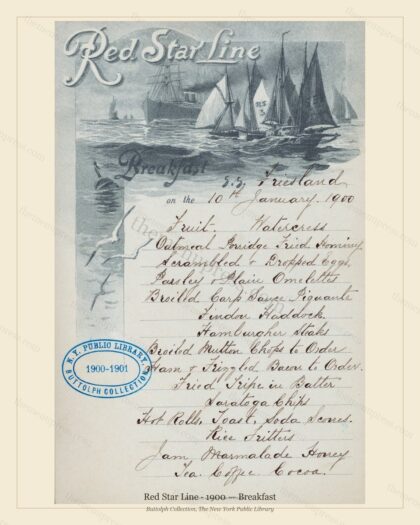 Red Star Line
R.S.
3
Breakfast
S.S. Friesland
on the 10th January. 1900
Fruit. Watercress
Oatmeal Porridge Fried Hominy
Scrambled & Dropped Eggs.
Parsley & Plain Omelettes
Broiled Carp Sauce Piquante
Findon Haddock.
Hamburgher Steaks
Broiled Mutton Chops to Order
Ham & Frizzled Bacon to Order.
Fried Tripe in Batter
Saratoga Chips
Hot Rolls, Toast, Soda Scones.
Rice Fritters
Jam Marmalade Honey
Tea. Coffee. Cocoa.
N.Y. PUBLIC LIBRARY
1900-1901
BUTTOLPH COLLECTION
Red Star Line - 1900 — Breakfast
Buttolph Collection, The New York Public Library